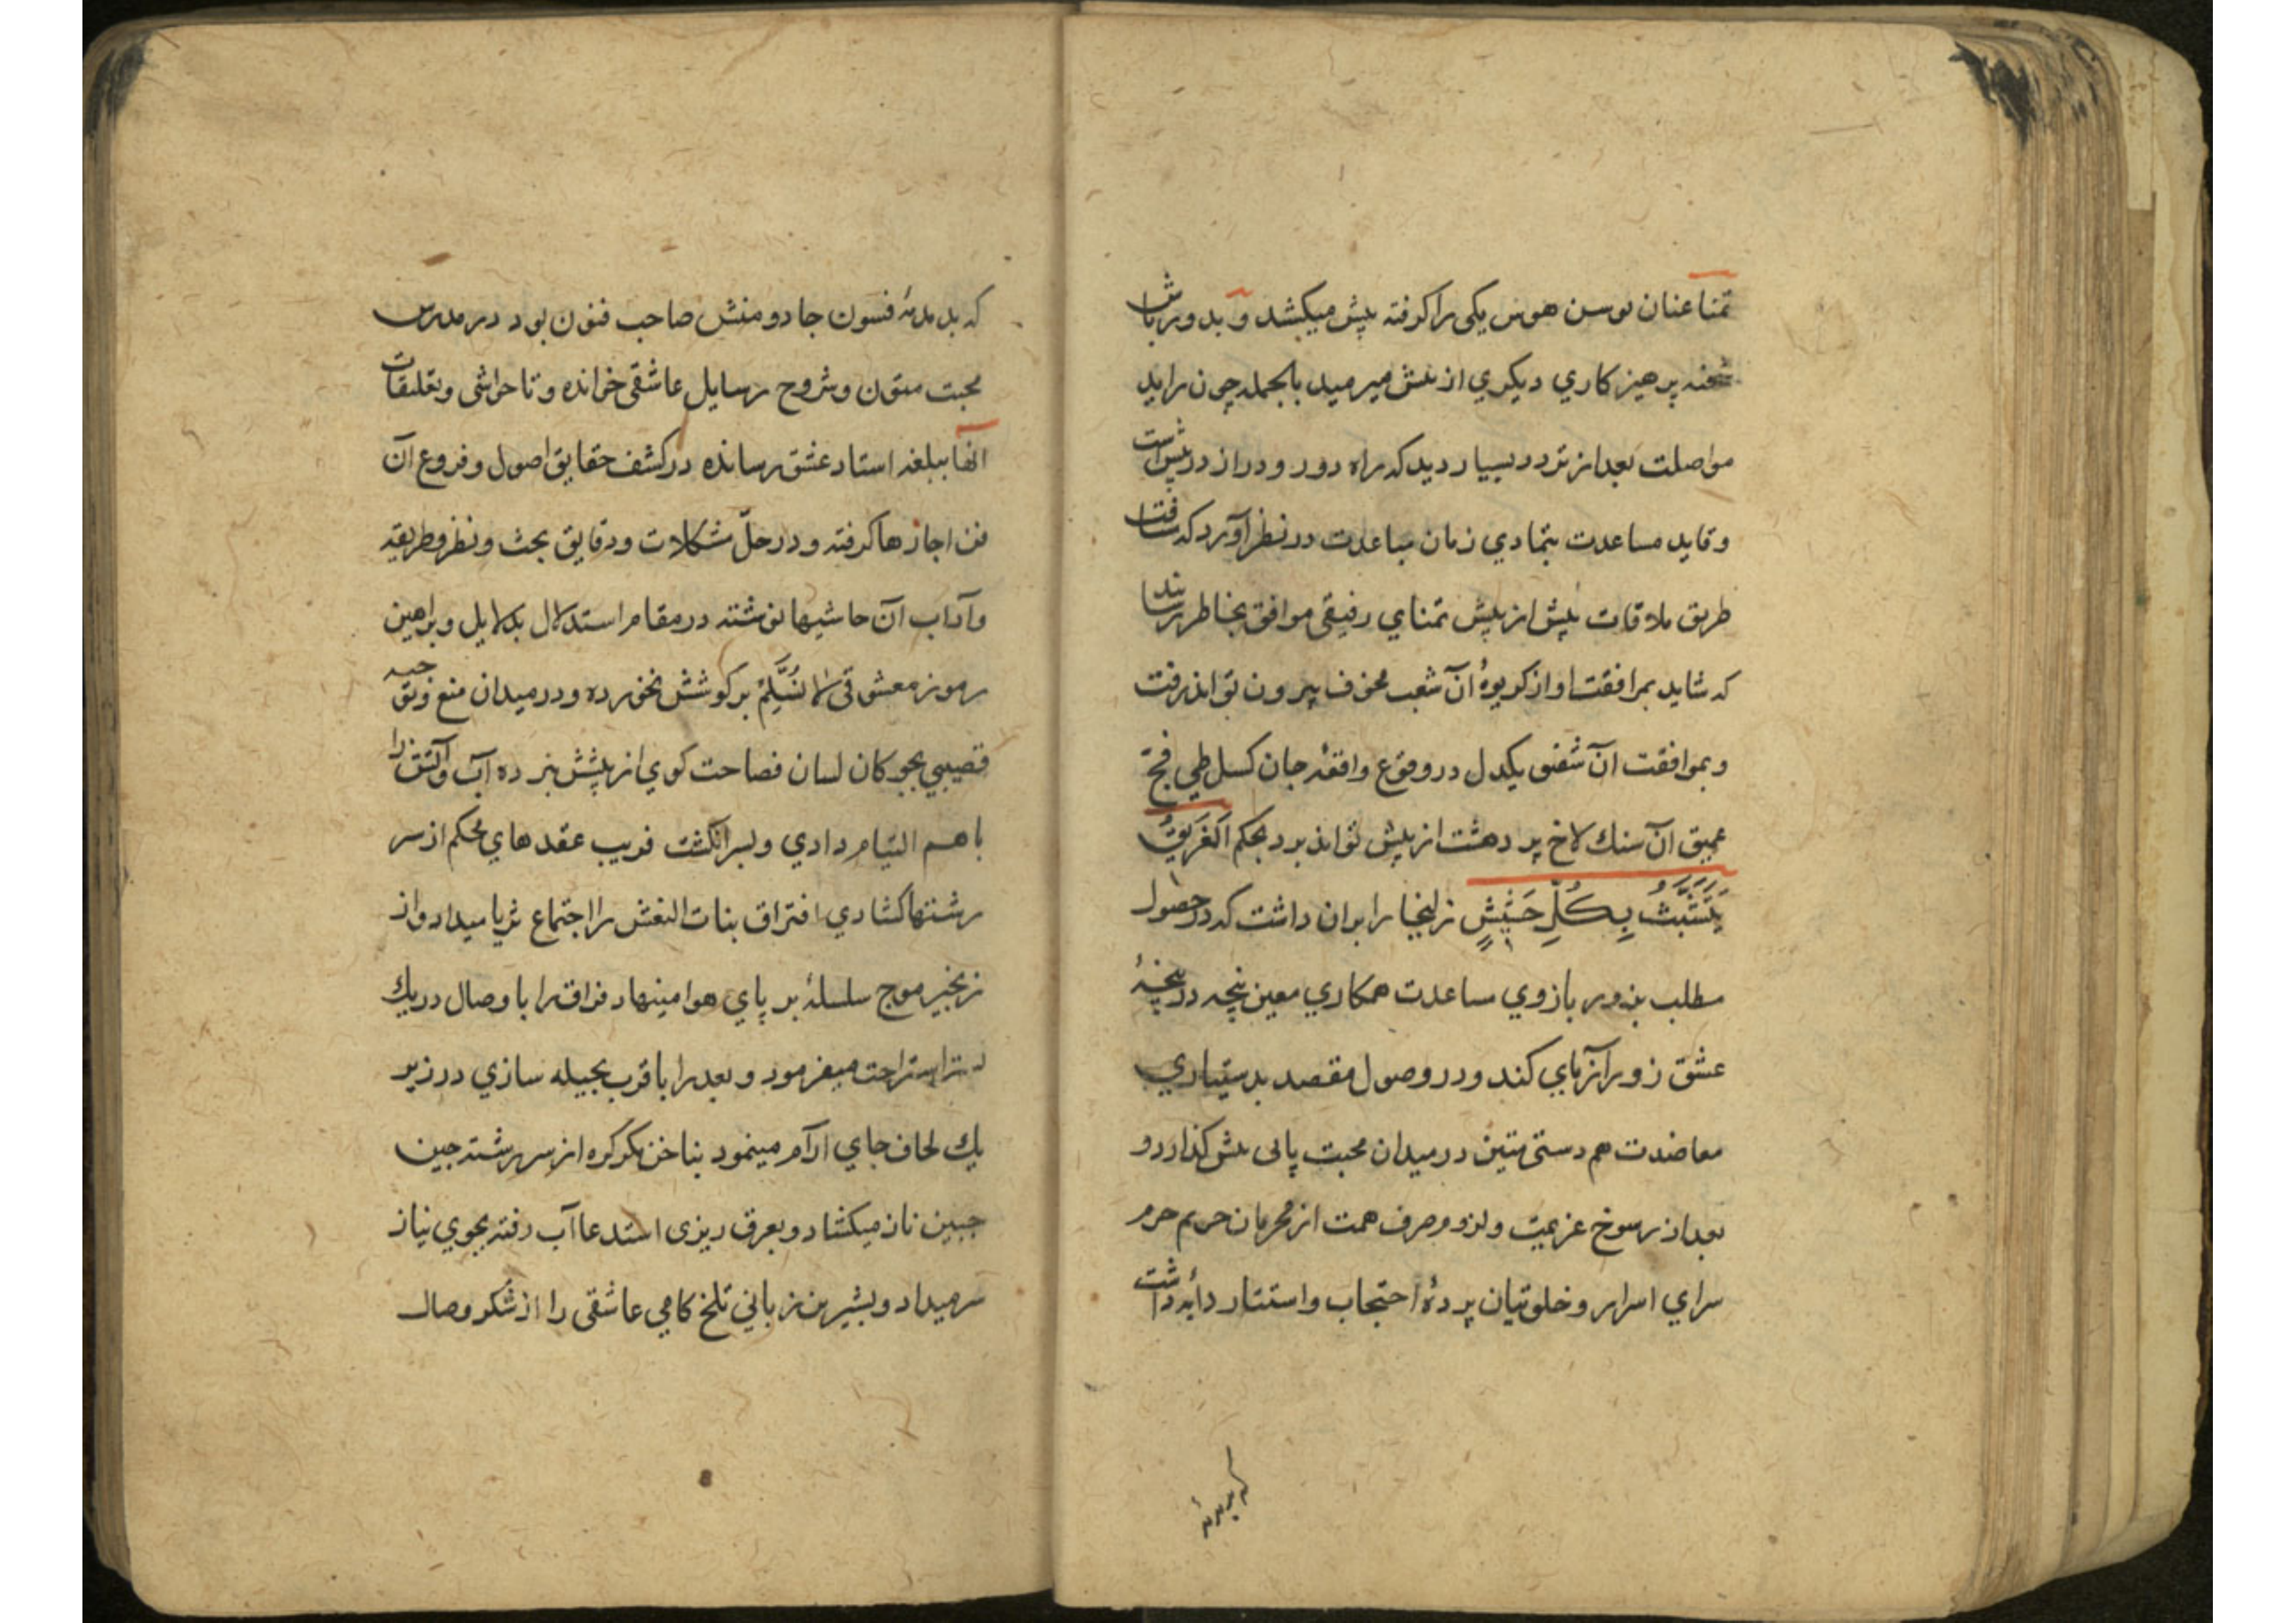 تمنا عنان توسن هوس یکی را کرفته پیش میکشد و بدورباش
شحنه پرهیزکاری دیکری از پیش میرمید بالجمله چون راید
مواصلت بعد از تردد بسیار دید که راه دور و دراز در پیش است
وقاید مساعدت بتمادی زمان مباعدت در نظر آورد که
طریق ملاقات پیش از پیش تمنای رفیقی موافق بخاطر رسا
که شاید بمرافقت او از کریوهٔ آن شعب مخوف بیرون تواند رفت
وبموافقت آن شفیق یکدل در وقوع واقعهٔ جان کسل طی فج
عمیق آن سنك لاخ پر دهشت از پیش تواند برد بحکم اَلغَرِیقُ
یَتَشَبَّثُ بِکُلِّ حَشِیشٍ زلیخا را بران داشت که در حصول
مطلب بزور بازوی مساعدت همکاری معین پنجه در پنجهٔ
عشق زور آزمای کند و در وصول مقصد بدستیاری
معاضدت هم دستی متین در میدان محبت پای پیش کذارد و
بعد از رسوخ عزیمت ولزوم صرف همت از محرمان حریم حرم
سرای اسرار و خلوتیان پردهٔ احتجاب واستتار دایهٔ داشت
که بدمدمهٔ
که بدمدمهٔ فسون جادو منش صاحب فنون بود در مدرس
محبت متون وشروح رسایل عاشقی خوانده و تا حواشی وتعلیقات
آنها ببلغه استاد عشق رسانده در کشف حقایق اصول وفروع آن
فن اجازها کرفته و در حلّ مشکلات ودقایق بحث ونظر وطریقه
وآداب آن حاشیها نوشته در مقام استدلال بدلایل وبراهین
رموز معشوقی لا نُسَلِّمْ بر کوشش نخورده و در میدان منع وتوجیه
قصیبی بچوکان لسان فصاحت کوی از پیشش نبرده آب وآتش را
باهم التیام دادی وبسر انکشت فریب عقدهای محکم از سر
رشتها کشادی افتراق بنات النعش را اجتماع ثریا میداد واز
زنجیر موج سلسلهٔ بر پای هوا مینهاد فراق را با وصال در یك
بستر استراحت میفرمود و بعد را با قرب بحیله سازی در زیر
یك لحاف جای آرام مینمود بناخن مکر کره از سر رشته چین
جبین ناز میکشاد و بعرق ریزی استدعا آب رفته بجوی نیاز
سر میداد و بشیرین زبانی تلخ کامی عاشقی را از شکر وصال